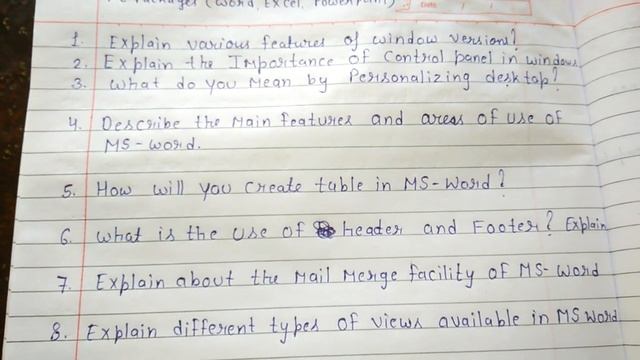 Packages (Word, Excel, PowerPoint)
Date
1. Explain various features of window versions?
2. Explain the Importance of Control panel in windows
3. What do you Mean by Personalizing desktop?
4. Describe the Main features and areas of use of
MS-word.
5. How will you create table in MS-Word?
6. what is the use of header and Footer? Explain
7. Explain about the Mail Merge facility of MS-Word
8. Explain different types of views available in MS Word